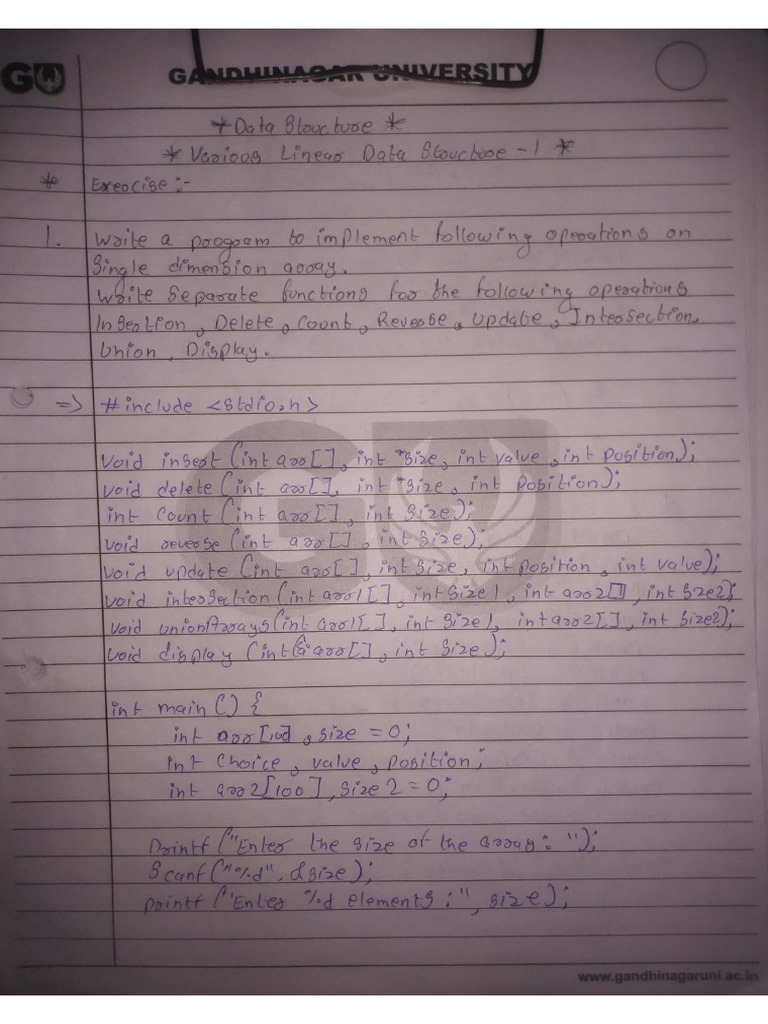 GU
GANDHINAGAR UNIVERSITY
* Data Structure *
* Various Linear Data Structure - 1 *
* Exercise :-
1. Write a program to implement following operations on
Single dimension array.
Write Separate functions for the following operations
Insertion, Delete, Count, Reverse, Update, Intersection,
Union, Display.
=> #include <stdio.h>
void insert (int arr[], int *size, int value, int position);
void delete (int arr[], int *size, int position);
int count (int arr[], int size);
void reverse (int arr[], int size);
void update (int arr[], int size, int position, int value);
void intersection (int arr1[], int size1, int arr2[], int size2);
void unionArrays (int arr1[], int size1, int arr2[], int size2);
void display (int arr[], int size);
int main () {
int arr[100], size = 0;
int choice, value, position;
int arr2[100], size2 = 0;
printf ("Enter the size of the array: ");
scanf ("%d", &size);
printf ("Enter %d elements :", size);
www.gandhinagaruni.ac.in